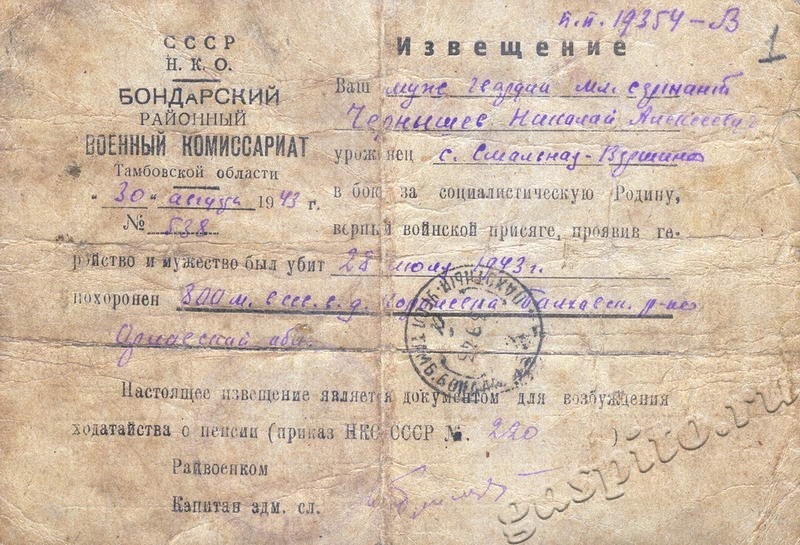 п.п. 19354-В
1
СССР
Н. К. О.
БОНДАРСКИЙ
РАЙОННЫЙ
ВОЕННЫЙ КОМИССАРИАТ
Тамбовской области
"30" августа 1943 г.
№ 538
Извещение
Ваш муж гвардии мл. сержант
Чернышев Николай Алексеевич
уроженец с.
в бою за социалистическую Родину,
верный войсковой присяге, проявив ге-
ройство и мужество был убит 28 июля 1943 г.
похоронен 800 м. д. р-на
обл.
Настоящее извещение является документом для возбуждения
ходатайства о пенсии (приказ НКО СССР № 220 )
Райвоенком
Капитан адм. сл.
gaspito.ru